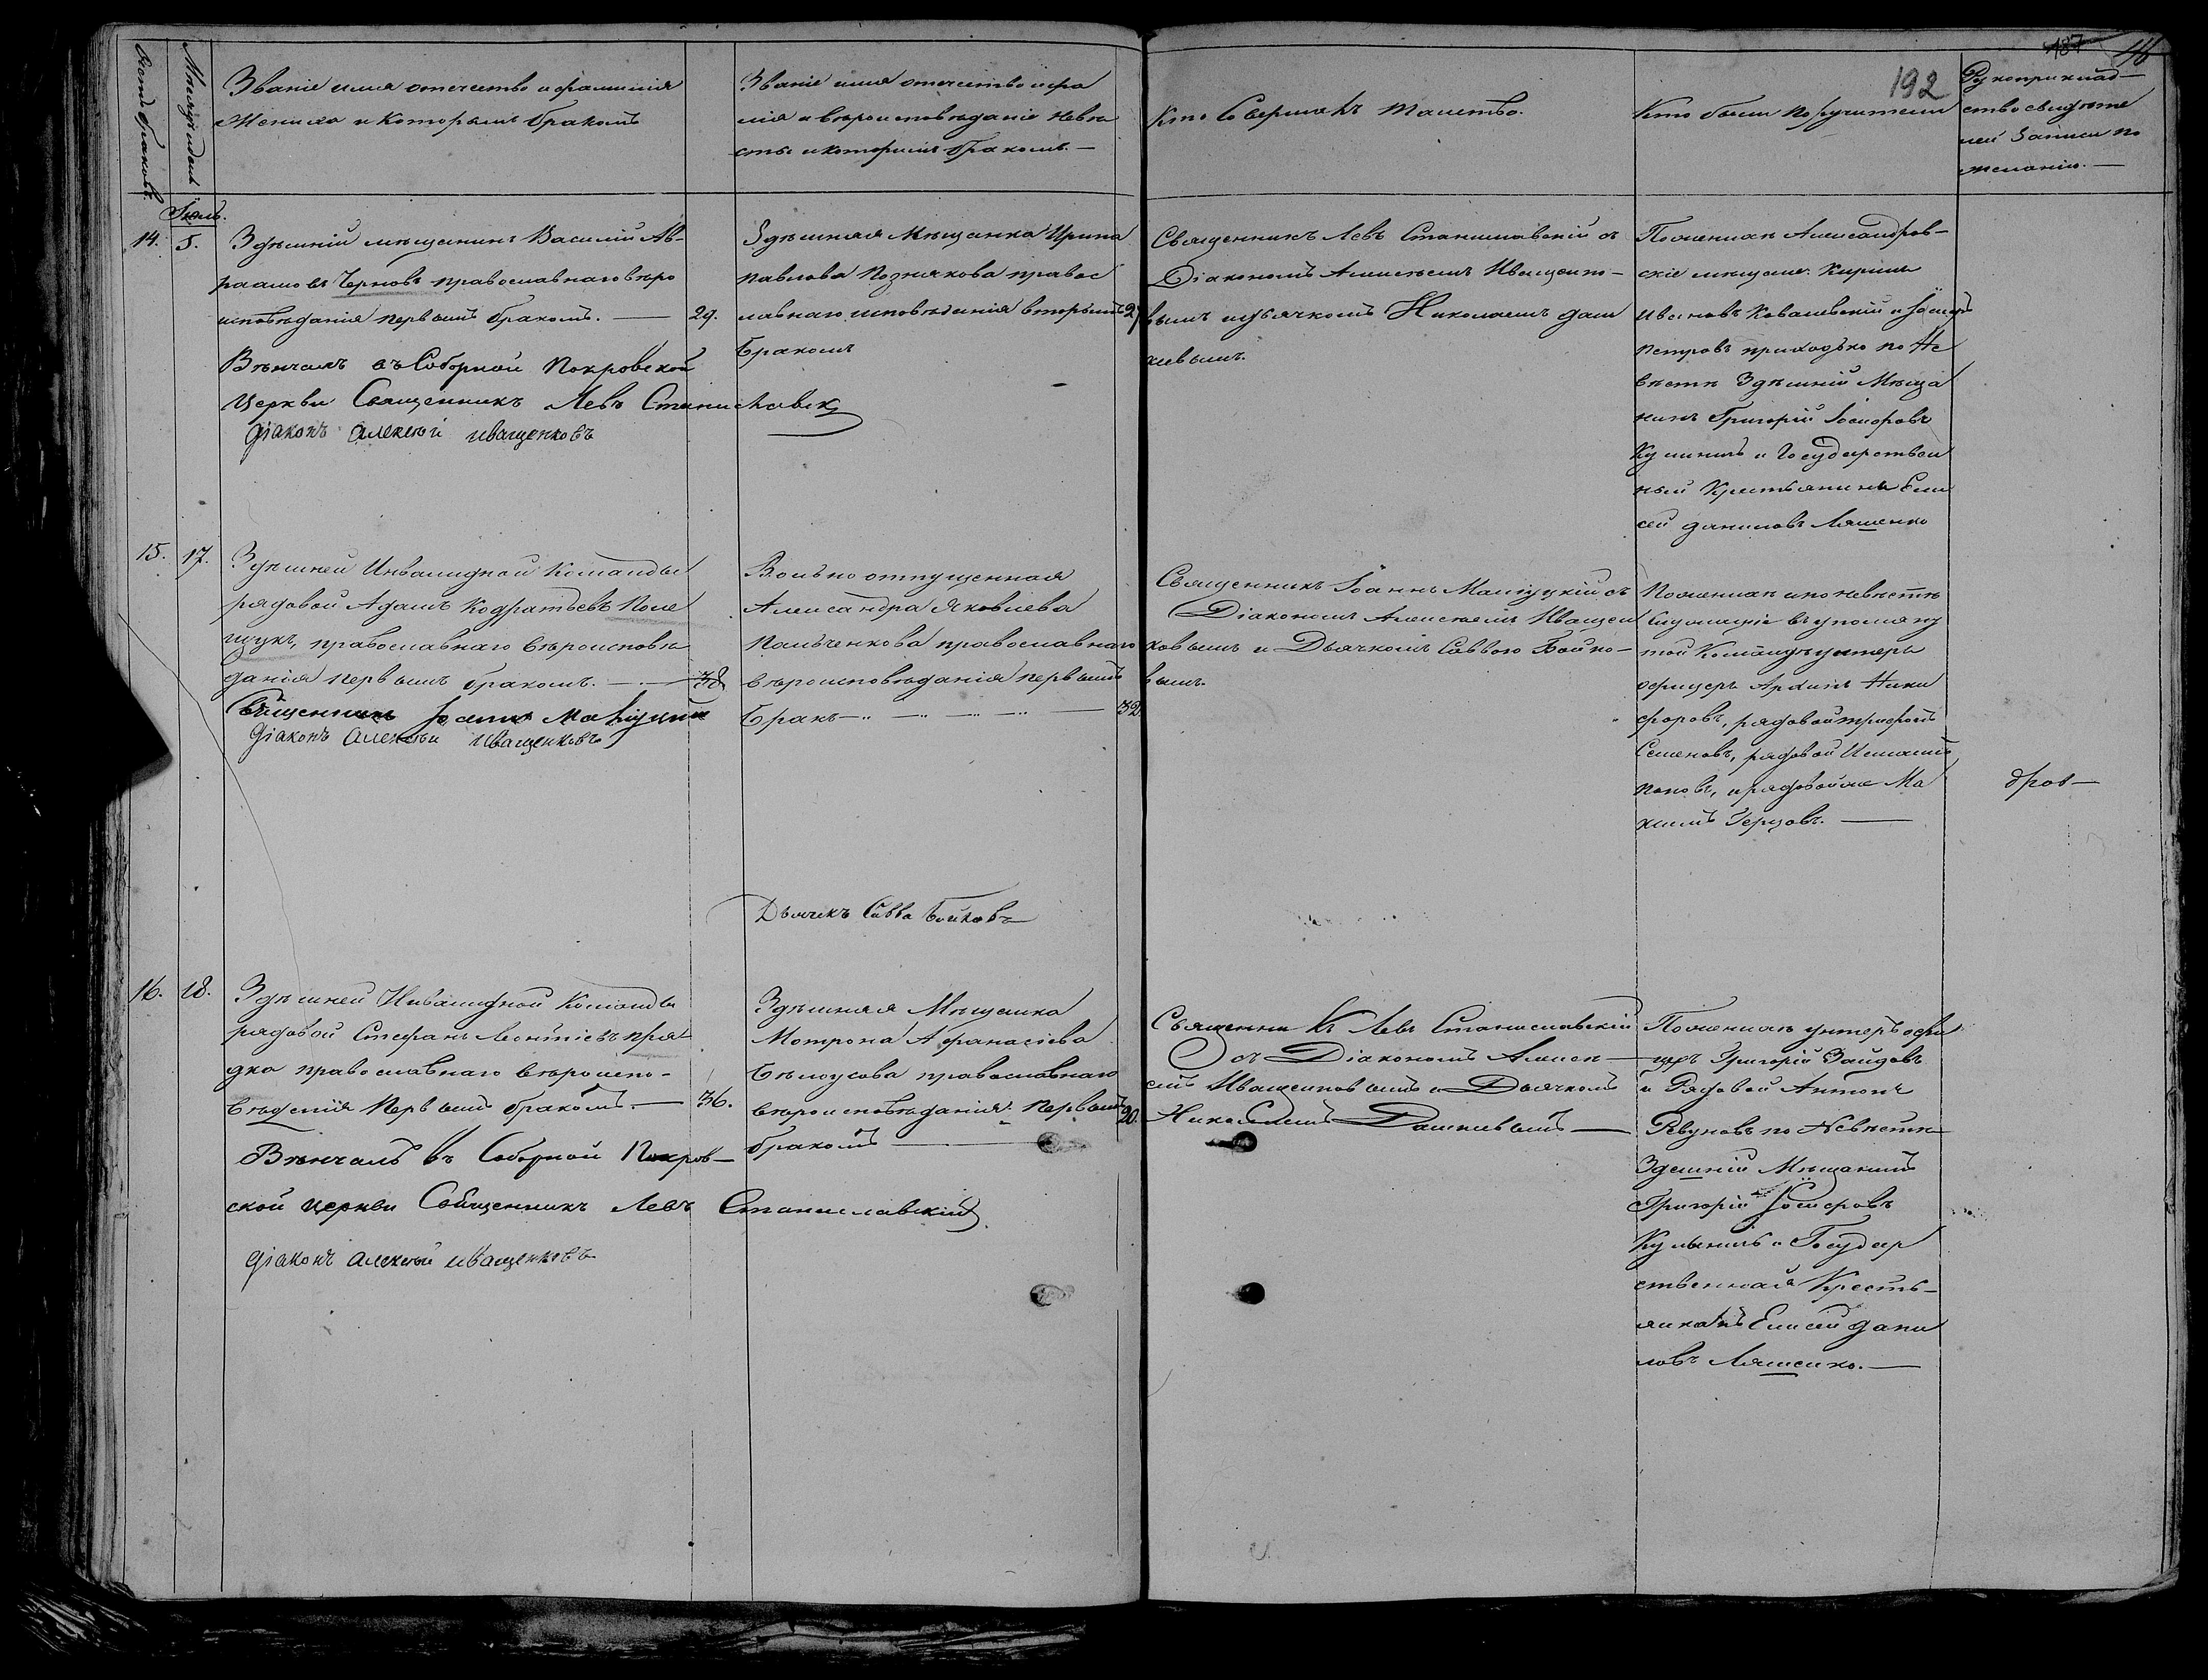 187 46
192
Счетъ браковъ.
Мѣсяцъ и день
Званіе имя отечество и фамилія
Жениха и Которымъ бракомъ
Званіе имя отечество и фа
лія и вѣроисповѣданіе невѣ
сты и которимъ бракомъ. —
Кто Совершалъ таинство.
Кто были поручители
Рукоприклад—
ство свидѣте
лей Записи по
желанію. —
Іюль.
14. 5.
Здѣшній мѣщанинъ Василій Ав-
раамовъ Черновъ православнаго вѣро
исповѣданія первымъ бракомъ. — 29.
Вѣнчалъ въ Соборной Покровской
Церкви Священникъ Левъ Станиславск
Діаконъ Алексѣй Иващенковъ
Здѣшняя Мѣщанка Ирина
Павлова Познякова правос
лавнаго исповѣданія вторымъ 27
бракомъ
Священникъ Левъ Станиславскій съ
Діакономъ Алексѣемъ Иващенко-
вымъ и дьячкомъ Николаемъ Даш
кевымъ.
По женихѣ Александров-
скіе мѣщане: Кирилъ
Ивановъ Ковалевскій и Іосифъ
Петровъ приходько по Не
вѣстѣ Здѣшній Мѣща
нинъ Григорій Іосифовъ
Кулиничъ и Государствен
ный Крестьянинъ Ели
сей Даниловъ Ляшенко
15. 17.
Здѣшней Инвалидной Команды
рядовой Адамъ Кодратьевъ Поле
щукъ, православнаго вѣроисповѣ
данія первымъ бракомъ. — 38
Священникъ Іоаннъ
Діаконъ Алексѣй Иващенковъ
Вольно отпущенная
Александра Яковлева
Пальченкова православнаго
вѣроисповѣданія первымъ
Бракъ — 32.
Священникъ Іоаннъ съ
Діакономъ Алексѣемъ Иващен
ковымъ и Дьячкомъ Саввою Бойко-
вымъ.
По женихѣ и по невѣстѣ
Служащіе въ упомяну
той Командѣ унтеръ
офицеръ Архипъ Ники
форовъ, рядовой трифонъ
Семеновъ, рядовой
Поповъ, и рядовой же Ма
ксимъ Герцовъ. —
дров—
Дьячекъ Савва Бойковъ
16. 18.
Здѣшней Инвалидной Команды
рядовой Стефанъ Леонтіевъ пря
дка православнаго вѣроиспо-
вѣденія первымъ бракомъ. — 36.
Вѣнчалъ въ Соборной Покров—
ской церкви Священникъ Левъ Станиславскій
Діаконъ Алексѣй Иващенковъ
Здѣшняя Мѣщанка
Мотрона Афанасіева
Бѣлоусова православнаго
вѣроисповѣданія первымъ 20.
бракомъ —
Священникъ Левъ Станиславскій
съ Діакономъ Алексѣ—
емъ Иващенковымъ и Дьячкомъ
Николаемъ Дашкевымъ —
По женихѣ унтеръ офи
церъ Григорій Заидовъ
и Рядовой Антонъ
Ревуновъ по Невѣстѣ
Здешній Мѣщанинъ
Григорій Іосифовъ
Кулиничъ и Государ
ственный Кресть-
янинъ Елисей Дани
ловъ Ляшенко. —